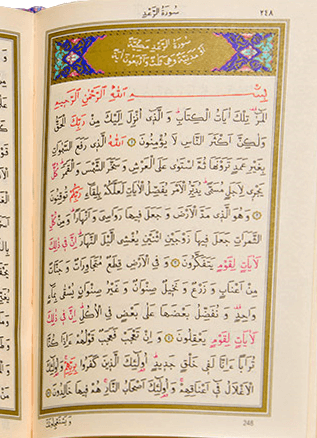 سُورَةُ الرَّعْدِ
٢٤٨
سُورَةُ الرَّعْدِ مَكِّيَّةٌ
بِسْمِ اللّٰهِ الرَّحْمٰنِ الرَّحِيمِ
الٓمٓرٰ تِلْكَ اٰيَاتُ الْكِتَابِ وَالَّذٖٓى اُنْزِلَ اِلَيْكَ مِنْ رَبِّكَ الْحَقُّ
وَلٰكِنَّ اَكْثَرَ النَّاسِ لَا يُؤْمِنُونَ ١ اَللّٰهُ الَّذٖى رَفَعَ السَّمٰوَاتِ
بِغَيْرِ عَمَدٍ تَرَوْنَهَا ثُمَّ اسْتَوٰى عَلَى الْعَرْشِ وَسَخَّرَ الشَّمْسَ وَالْقَمَرَ كُلٌّ
يَجْرٖى لِاَجَلٍ مُسَمًّى يُدَبِّرُ الْاَمْرَ يُفَصِّلُ الْاٰيَاتِ لَعَلَّكُمْ بِلِقَٓاءِ رَبِّكُمْ تُوقِنُونَ
٢ وَهُوَ الَّذٖى مَدَّ الْاَرْضَ وَجَعَلَ فٖيهَا رَوَاسِىَ وَاَنْهَارًا وَمِنْ كُلِّ
الثَّمَرَاتِ جَعَلَ فٖيهَا زَوْجَيْنِ اثْنَيْنِ يُغْشِى الَّيْلَ النَّهَارَ اِنَّ فٖى ذٰلِكَ
لَاٰيَاتٍ لِقَوْمٍ يَتَفَكَّرُونَ ٣ وَفِى الْاَرْضِ قِطَعٌ مُتَجَاوِرَاتٌ وَجَنَّاتٌ
مِنْ اَعْنَابٍ وَزَرْعٌ وَنَخٖيلٌ صِنْوَانٌ وَغَيْرُ صِنْوَانٍ يُسْقٰى بِمَٓاءٍ
وَاحِدٍ وَنُفَضِّلُ بَعْضَهَا عَلٰى بَعْضٍ فِى الْاُكُلِ اِنَّ فٖى ذٰلِكَ
لَاٰيَاتٍ لِقَوْمٍ يَعْقِلُونَ ٤ وَاِنْ تَعْجَبْ فَعَجَبٌ قَوْلُهُمْ ءَاِذَا كُنَّا
تُرَابًا ءَاِنَّا لَفٖى خَلْقٍ جَدٖيدٍ اُولٰٓئِكَ الَّذٖينَ كَفَرُوا بِرَبِّهِمْ وَاُولٰٓئِكَ
الْاَغْلَالُ فٖٓى اَعْنَاقِهِمْ وَاُولٰٓئِكَ اَصْحَابُ النَّارِ هُمْ فٖيهَا خَالِدُونَ ٥
وَيَسْتَعْجِلُونَكَ
248